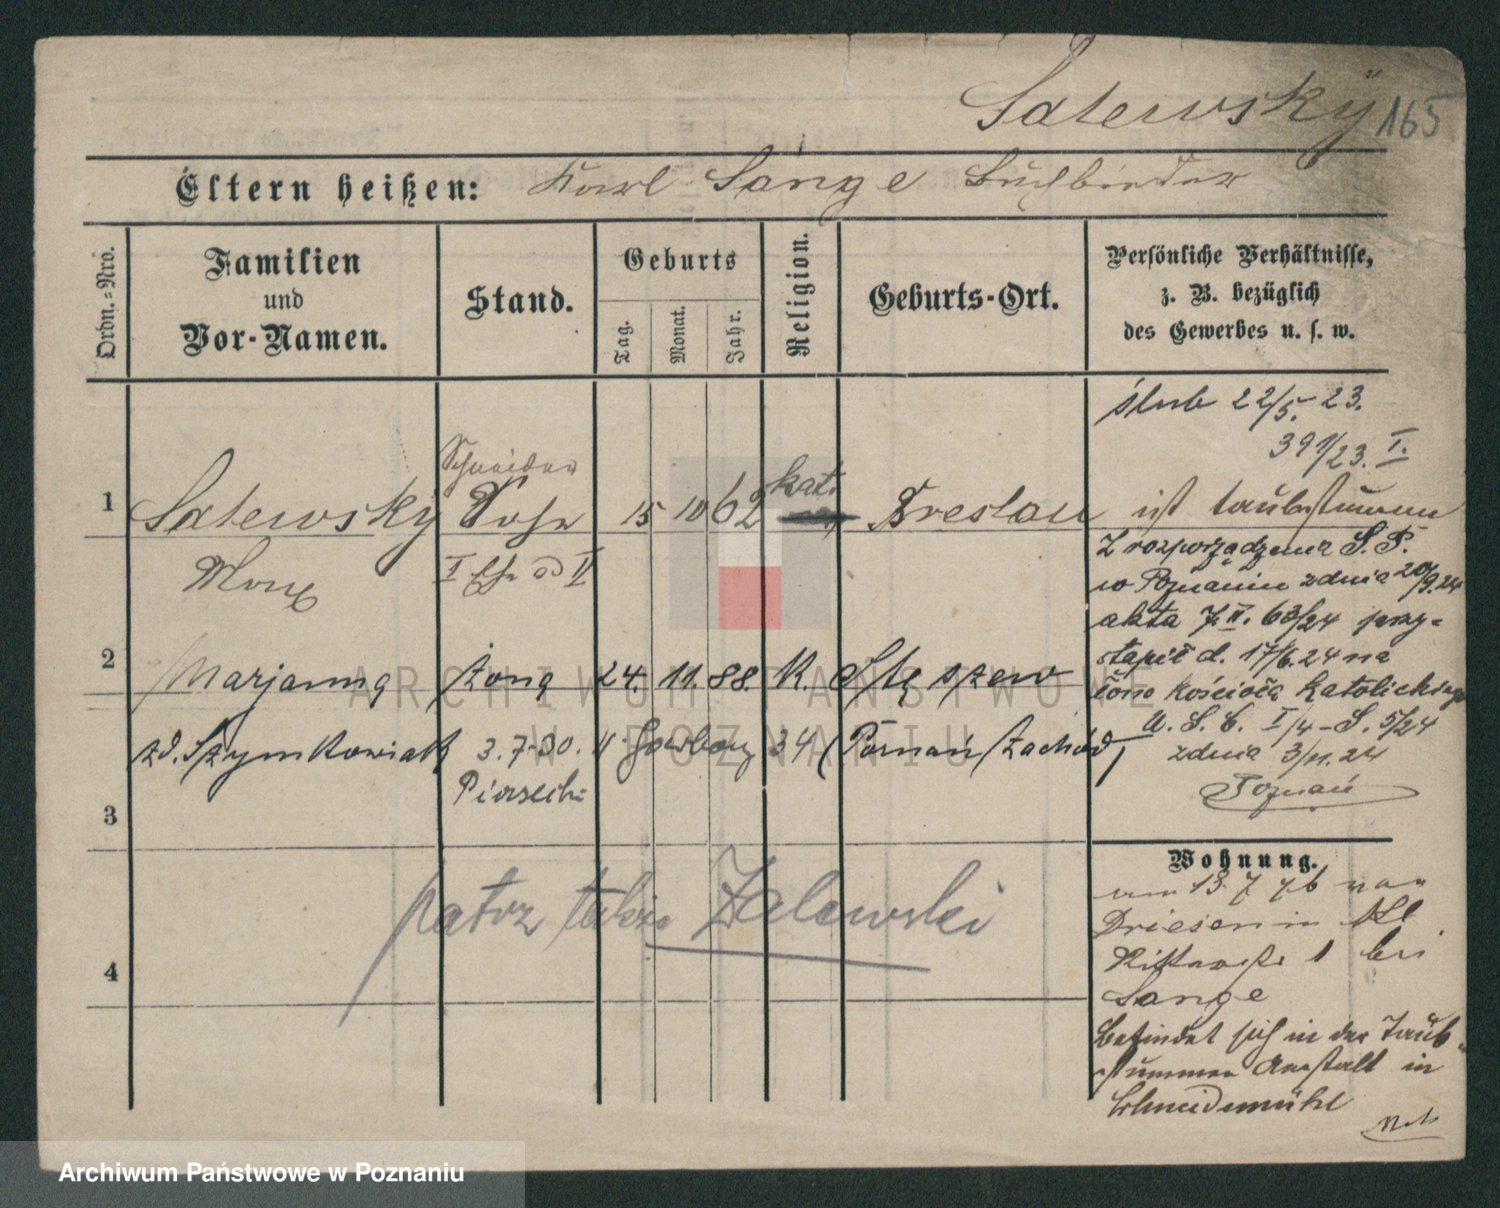 Salewsky 165
Eltern heißen: Karl Lange Buchbinder
Ordn.=Nro.
Familien
und
Vor-Namen.
Stand.
Geburts
Tag.
Monat.
Jahr.
Religion.
Geburts-Ort.
Persönliche Verhältnisse,
z. B. bezüglich
des Gewerbes u. s. w.
ślub 22/5. 23.
391/23. I.
Schneider
kat.
1 Salewsky Sohn 15 10 62 Breslau ist taubstumm
Max
I Ehe ad II
Z rozporządzenia S. P.
w Poznaniu z dnia 20/9.24
akta 7 II. 63/24 przy-
stąpił d. 17/6.24 na
łono kościoła katolickiego
U. S. C. I/4-S. 5/24
z dnia 3/11.24
Poznań
2 Marjanna żona 24. 11. 88. K. Stęszew
zd. Szymkowiak 3.7.30. 34 (Poznań zachód)
Piasecki
3
4
patrz także Zalewski
Wohnung.
am 13 7 76 von
Driesen in Kl
Ritterstr 1 bei
Lange
befindet sich in der Taub-
stummen Anstalt in
Schneidemühl
ARCHIWUM PAŃSTWOWE
W POZNANIU
Archiwum Państwowe w Poznaniu